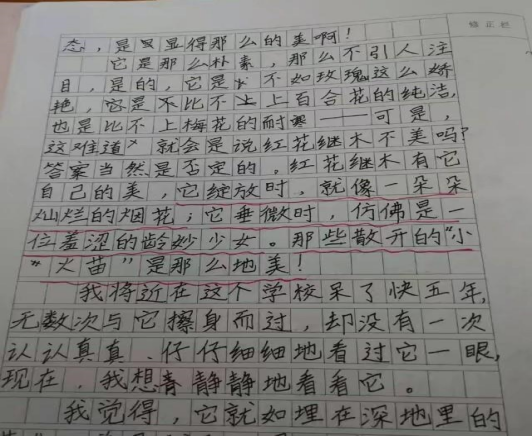 矫正栏
态，是显得那么的美啊！
它是那么朴素，那么不引人注
目，是的，它是不如玫瑰这么娇
艳，它是不比不上百合花的纯洁，
也是比不上梅花的耐寒——可是，
这难道就会是说红花继木不美吗？
答案当然是否定的。红花继木有它
自己的美，它绽放时，就像一朵朵
灿烂的烟花；它垂微时，仿佛是一
位羞涩的龄妙少女。那些散开的“小
“火苗”是那么地美！
我将近在这个学校呆了快五年，
无数次与它擦身而过，却没有一次
认认真真、仔仔细细地看过它一眼，
现在，我想静静地看看它。
我觉得，它就如埋在深地里的